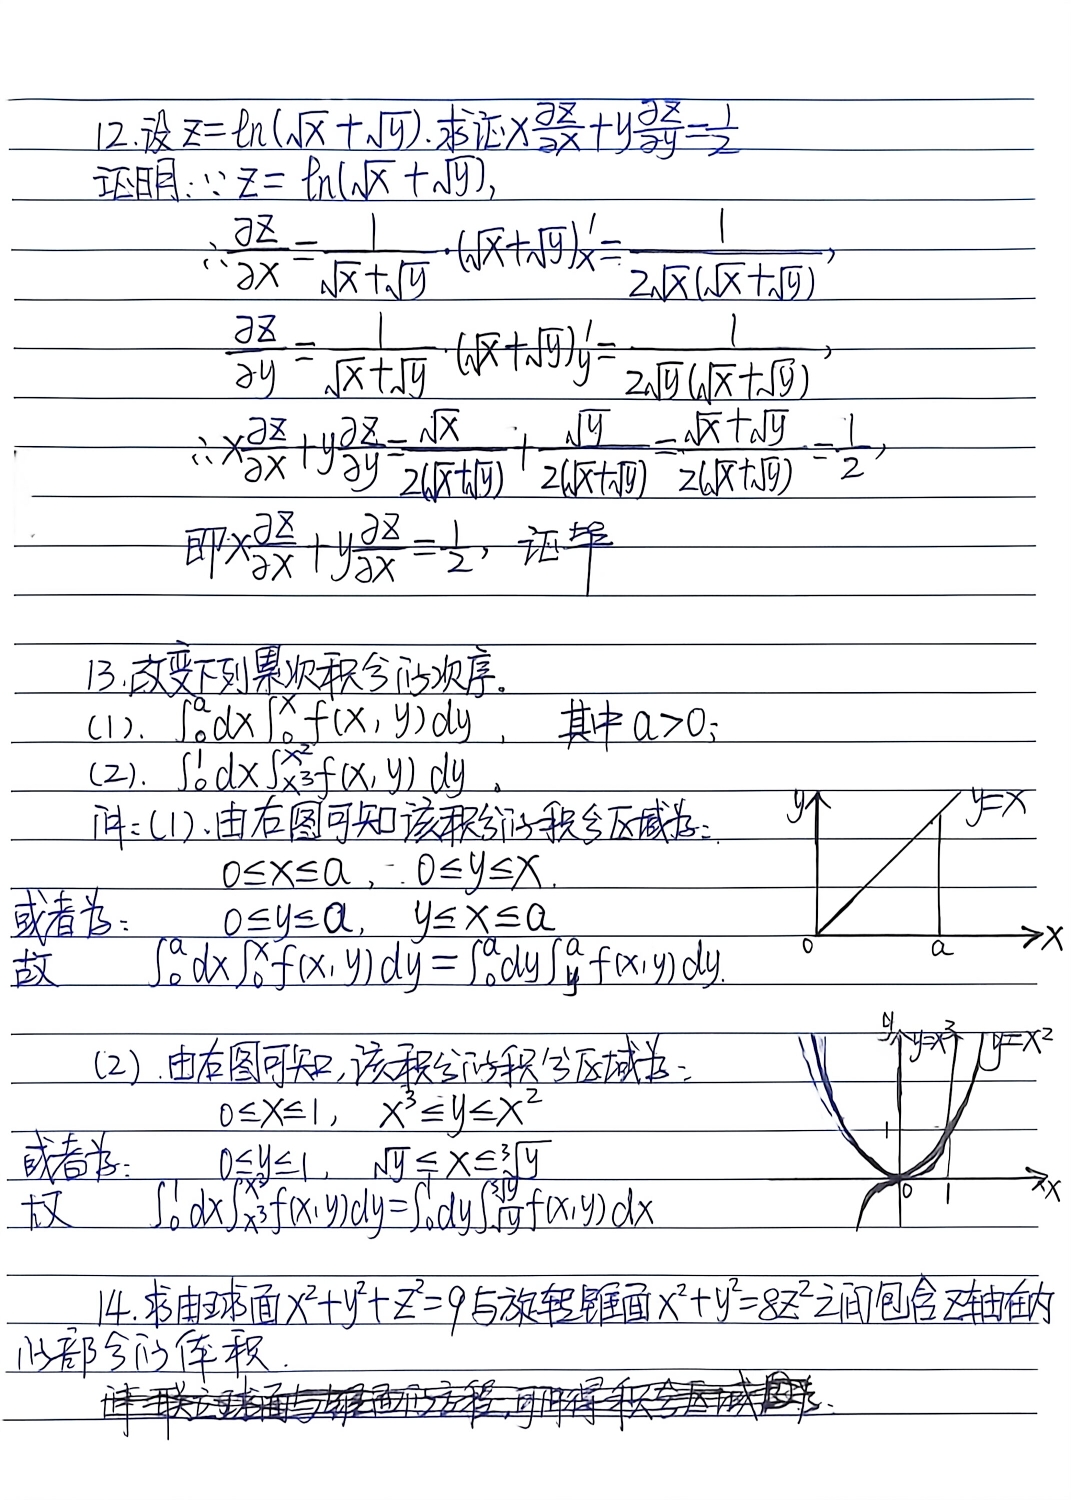 12.设 z=ln(√x+√y).求证x∂z/∂x+y∂z/∂y=1/2
证明:∵z=ln(√x+√y),
∴∂z/∂x=1/(√x+√y)·(√x+√y)'x=1/(2√x(√x+√y)),
∂z/∂y=1/(√x+√y)·(√x+√y)'y=1/(2√y(√x+√y)),
∴x∂z/∂x+y∂z/∂y=√x/(2(√x+√y))+√y/(2(√x+√y))=(√x+√y)/(2(√x+√y))=1/2,
即x∂z/∂x+y∂z/∂x=1/2,证毕
13.改变下列累次积分的次序.
(1).∫₀ᵃdx∫₀ˣf(x,y)dy,其中a>0;
(2).∫₀¹dx∫_{x³}^{x²}f(x,y)dy.
解:(1).由右图可知该积分的积分区域为:
0≤x≤a, 0≤y≤x.
或者为: 0≤y≤a, y≤x≤a
故 ∫₀ᵃdx∫₀ˣf(x,y)dy=∫₀ᵃdy∫_y^a f(x,y)dy.
y y=x
0 a x
(2).由右图可知,该积分的积分区域为:
0≤x≤1, x³≤y≤x²
或者为: 0≤y≤1, √y≤x≤³√y
故 ∫₀¹dx∫_{x³}^{x²}f(x,y)dy=∫₀¹dy∫_{√y}^{³√y}f(x,y)dx
y y=x³ y=x²
1
0 1 x
14.求由球面x²+y²+z²=9与旋转锥面x²+y²=8z²之间包含z轴在内
的部分的体积.